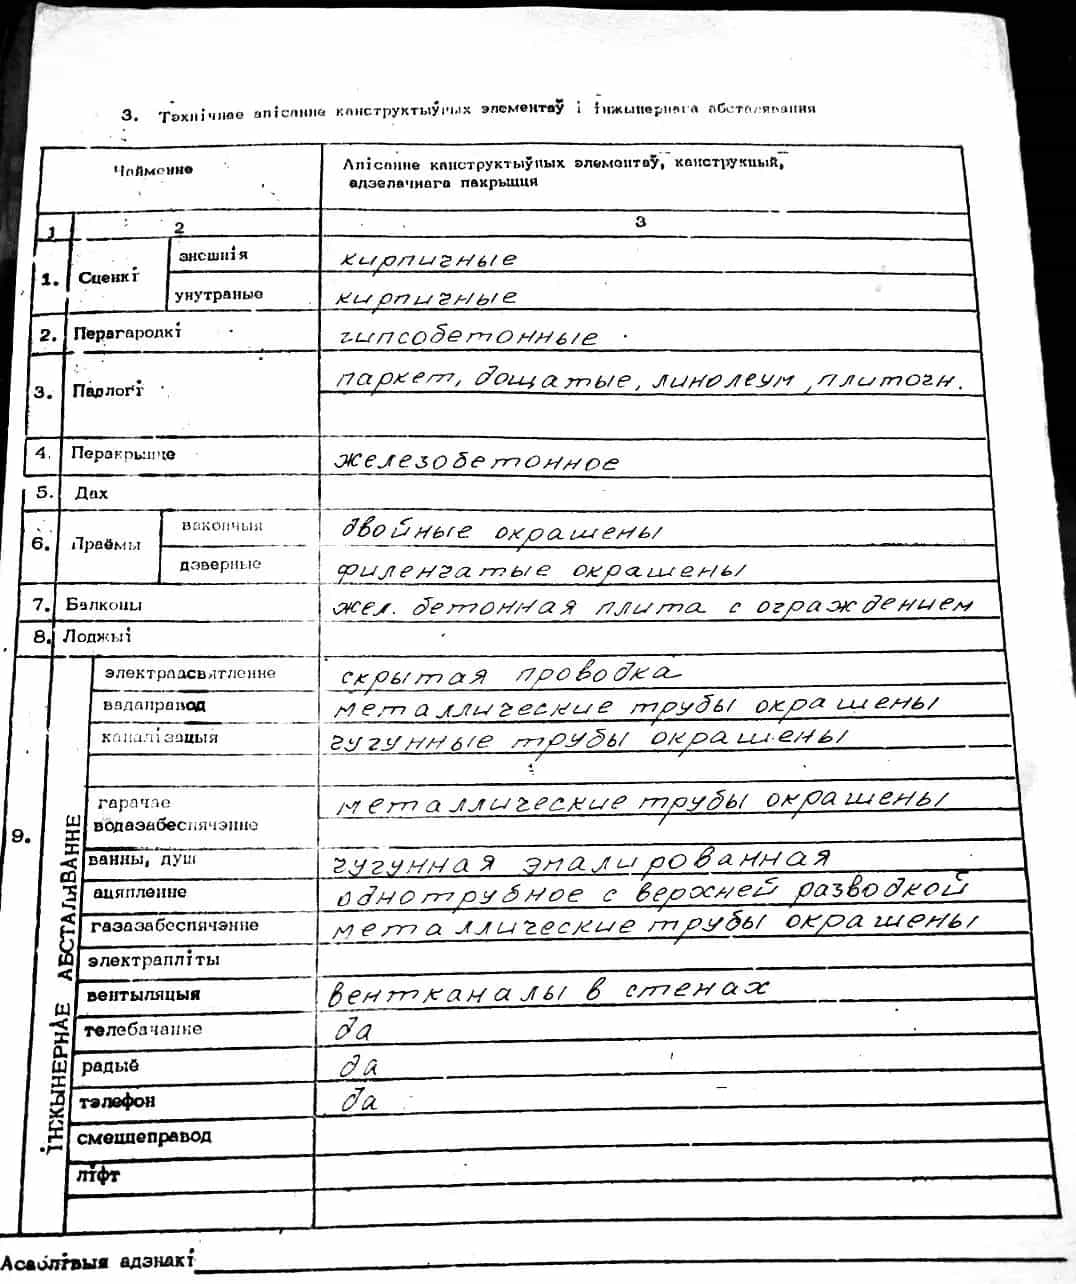 3. Тэхнічнае апісанне канструктыўных элементаў і інжынернага абсталявання
Найменне
Апісанне канструктыўных элементаў, канструкцый,
адзелачнага пакрыцця
1 2 3
1. Сценкі знешнія кирпичные
унутраныя кирпичные
2. Перагародкі гипсобетонные
3. Падлогі паркет, дощатые, линолеум, плиточн.
4. Перакрыцце железобетонное
5. Дах
6. Праёмы ваконныя двойные окрашены
дзверныя филенчатые окрашены
7. Балконы жел. бетонная плита с ограждением
8. Лоджыі
9. ІНЖЫНЕРНАЕ АБСТАЛЯВАННЕ
электраасвятленне скрытая проводка
вадаправод металлические трубы окрашены
каналізацыя чугунные трубы окрашены
гарачае металлические трубы окрашены
водазабеспячэнне
ванны, душ чугунная эмалированная
ацяпленне однотрубное с верхней разводкой
газазабеспячэнне металлические трубы окрашены
электрапліты
вентыляцыя вентканалы в стенах
телебачанне да
радыё да
тэлефон да
смеццеправод
ліфт
Асаблівыя адзнакі